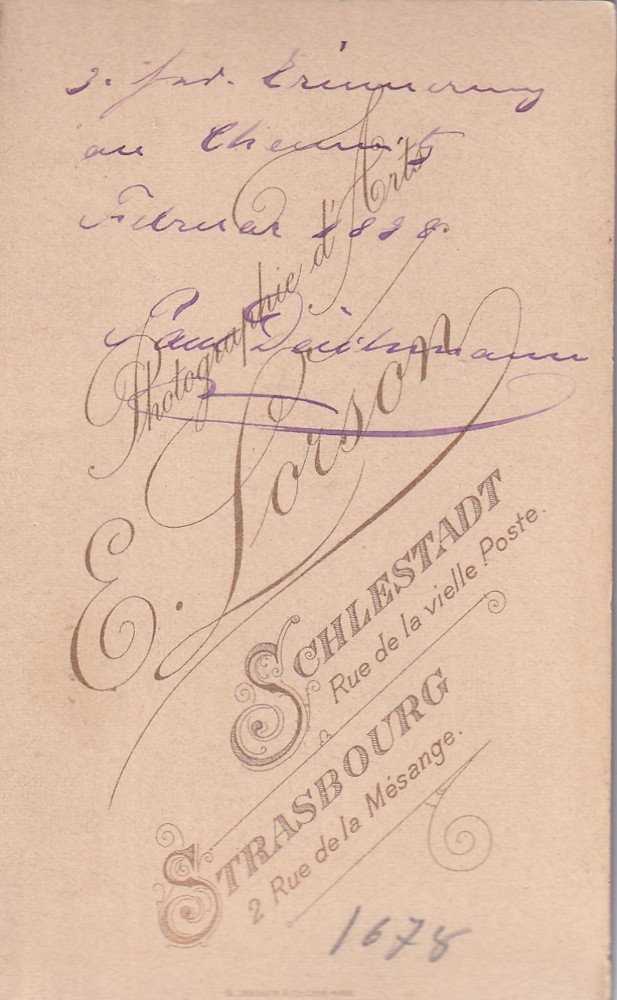 z. frd. Erinnerung
an Chemnitz
Februar 1898
Paul
Photographie d'Arts
E. Lorson
SCHLESTADT
Rue de la vielle Poste.
STRASBOURG
2 Rue de la Mésange.
1678